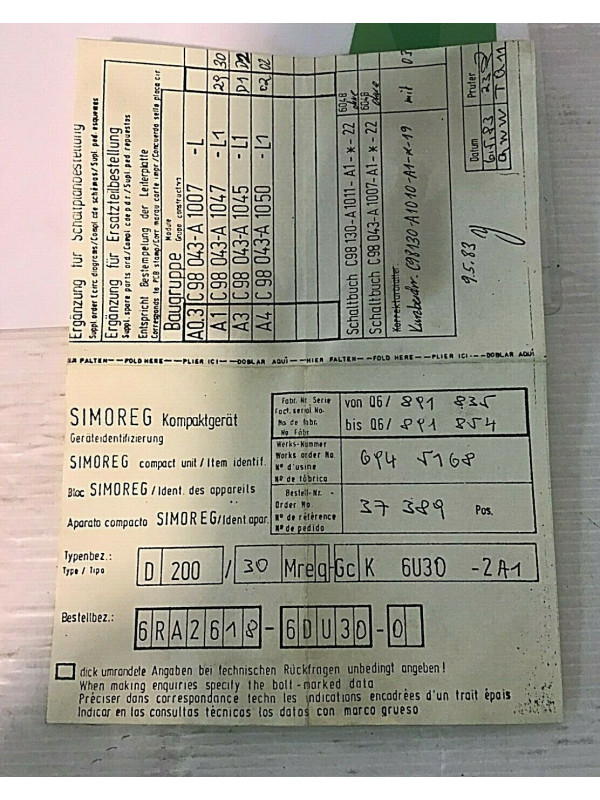 Ergänzung für Schaltplanbestellung
Suppl order f. circ diagrams/Compl cde schémas/Supl. ped esquemas
Ergänzung für Ersatzteilbestellung
Suppl spare parts ord/Compl cde p d r/Supl ped repuestos
Entspricht Bestempelung der Leiterplatte
Corresponds to PCB stamp/Corr marqu carte impr/Concuerda sello placa cir.
Baugruppe Module Grupo constructivo
A0.3 C98 043-A 1007 -L
A1 C98 043-A 1047 -L1 29 30
A3 C98 043-A 1045 -L1 D1 D2
A4 C98 043-A 1050 -L1 02 02
Schaltbuch C98 130-A1011-A1-*-22 6048 ohne
Schaltbuch C98 043-A 1007-A1-*-22 6048 ohne
Korrekturblätter
C98130 A1010-A1-K-19 mit 03
9.5.83
Datum Prüfer
6.5.83 23
QWW TQ11
HIER FALTEN---FOLD HERE---PLIER ICI---DOBLAR AQUÌ---HIER FALTEN---FOLD HERE---PLIER ICI---DOBLAR AQUÍ
SIMOREG Kompaktgerät
Geräteidentifizierung
SIMOREG compact unit/Item identif.
Bloc SIMOREG/Ident. des appareils
Aparato compacto SIMOREG/Ident apar.
Fabr. Nr Serie
Fact. serial No.
No de fabr.
No Fábr
von Q6/ 891 835
bis Q6/ 891 854
Werks-Nummer
Works order No.
Nº d'usine
Nº de fábrica
694 5168
Bestell-Nr.
Order No.
Nº de référence
Nº de pedido
37 389 Pos.
Typenbez.:
Type / Tipo
D 200 / 30 Mreq-Gc K 6U30 -2A1
Bestellbez.:
6RA2618-6DU30-0
dick umrandete Angaben bei technischen Rückfragen unbedingt angeben!
When making enquiries specify the bolt-marked data
Préciser dans correspondance techn les indications encadrées d'un trait épais
Indicar en las consultas técnicas los datos con marco grueso